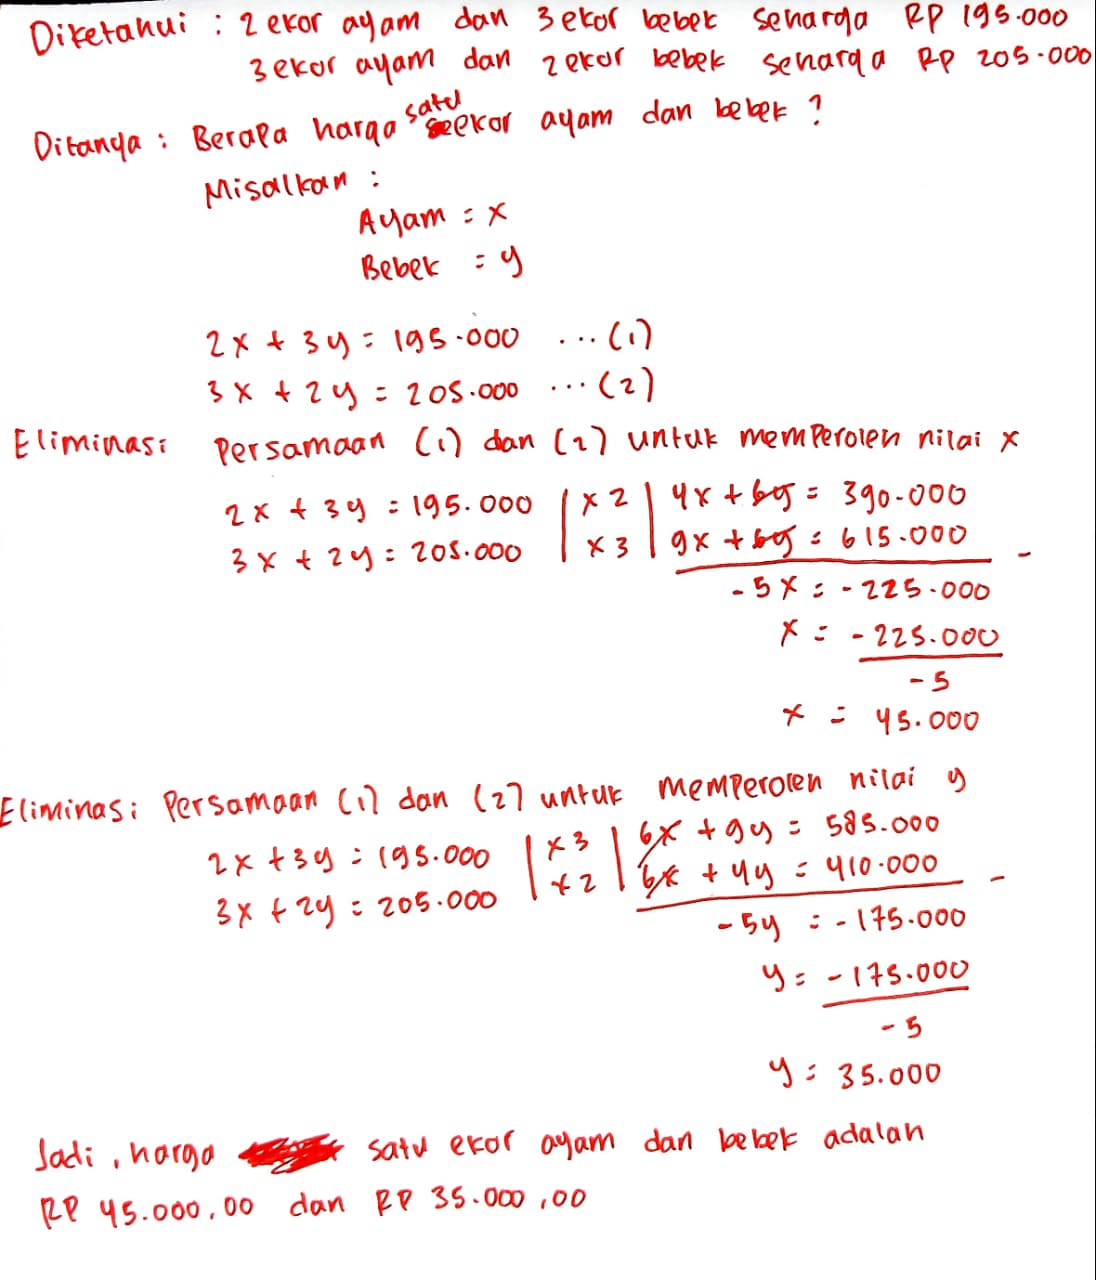 Diketahui : 2 ekor ayam dan 3 ekor bebek seharga RP 195.000
3 ekor ayam dan 2 ekor bebek seharga RP 205.000
Ditanya : Berapa harga satu ekor ayam dan bebek ?
Misalkan :
Ayam = x
Bebek = y
2x + 3y = 195.000 ... (1)
3x + 2y = 205.000 ... (2)
Eliminasi Persamaan (1) dan (2) untuk memperoleh nilai x
2x + 3y = 195.000 | x 2 | 4x + 6y = 390.000
3x + 2y = 205.000 | x 3 | 9x + 6y = 615.000 -
-5x = -225.000
x = -225.000
-5
x = 45.000
Eliminasi Persamaan (1) dan (2) untuk memperoleh nilai y
2x + 3y = 195.000 | x 3 | 6x + 9y = 585.000
3x + 2y = 205.000 | x 2 | 6x + 4y = 410.000 -
-5y = -175.000
y = -175.000
-5
y = 35.000
Jadi, harga satu ekor ayam dan bebek adalah
RP 45.000,00 dan RP 35.000,00